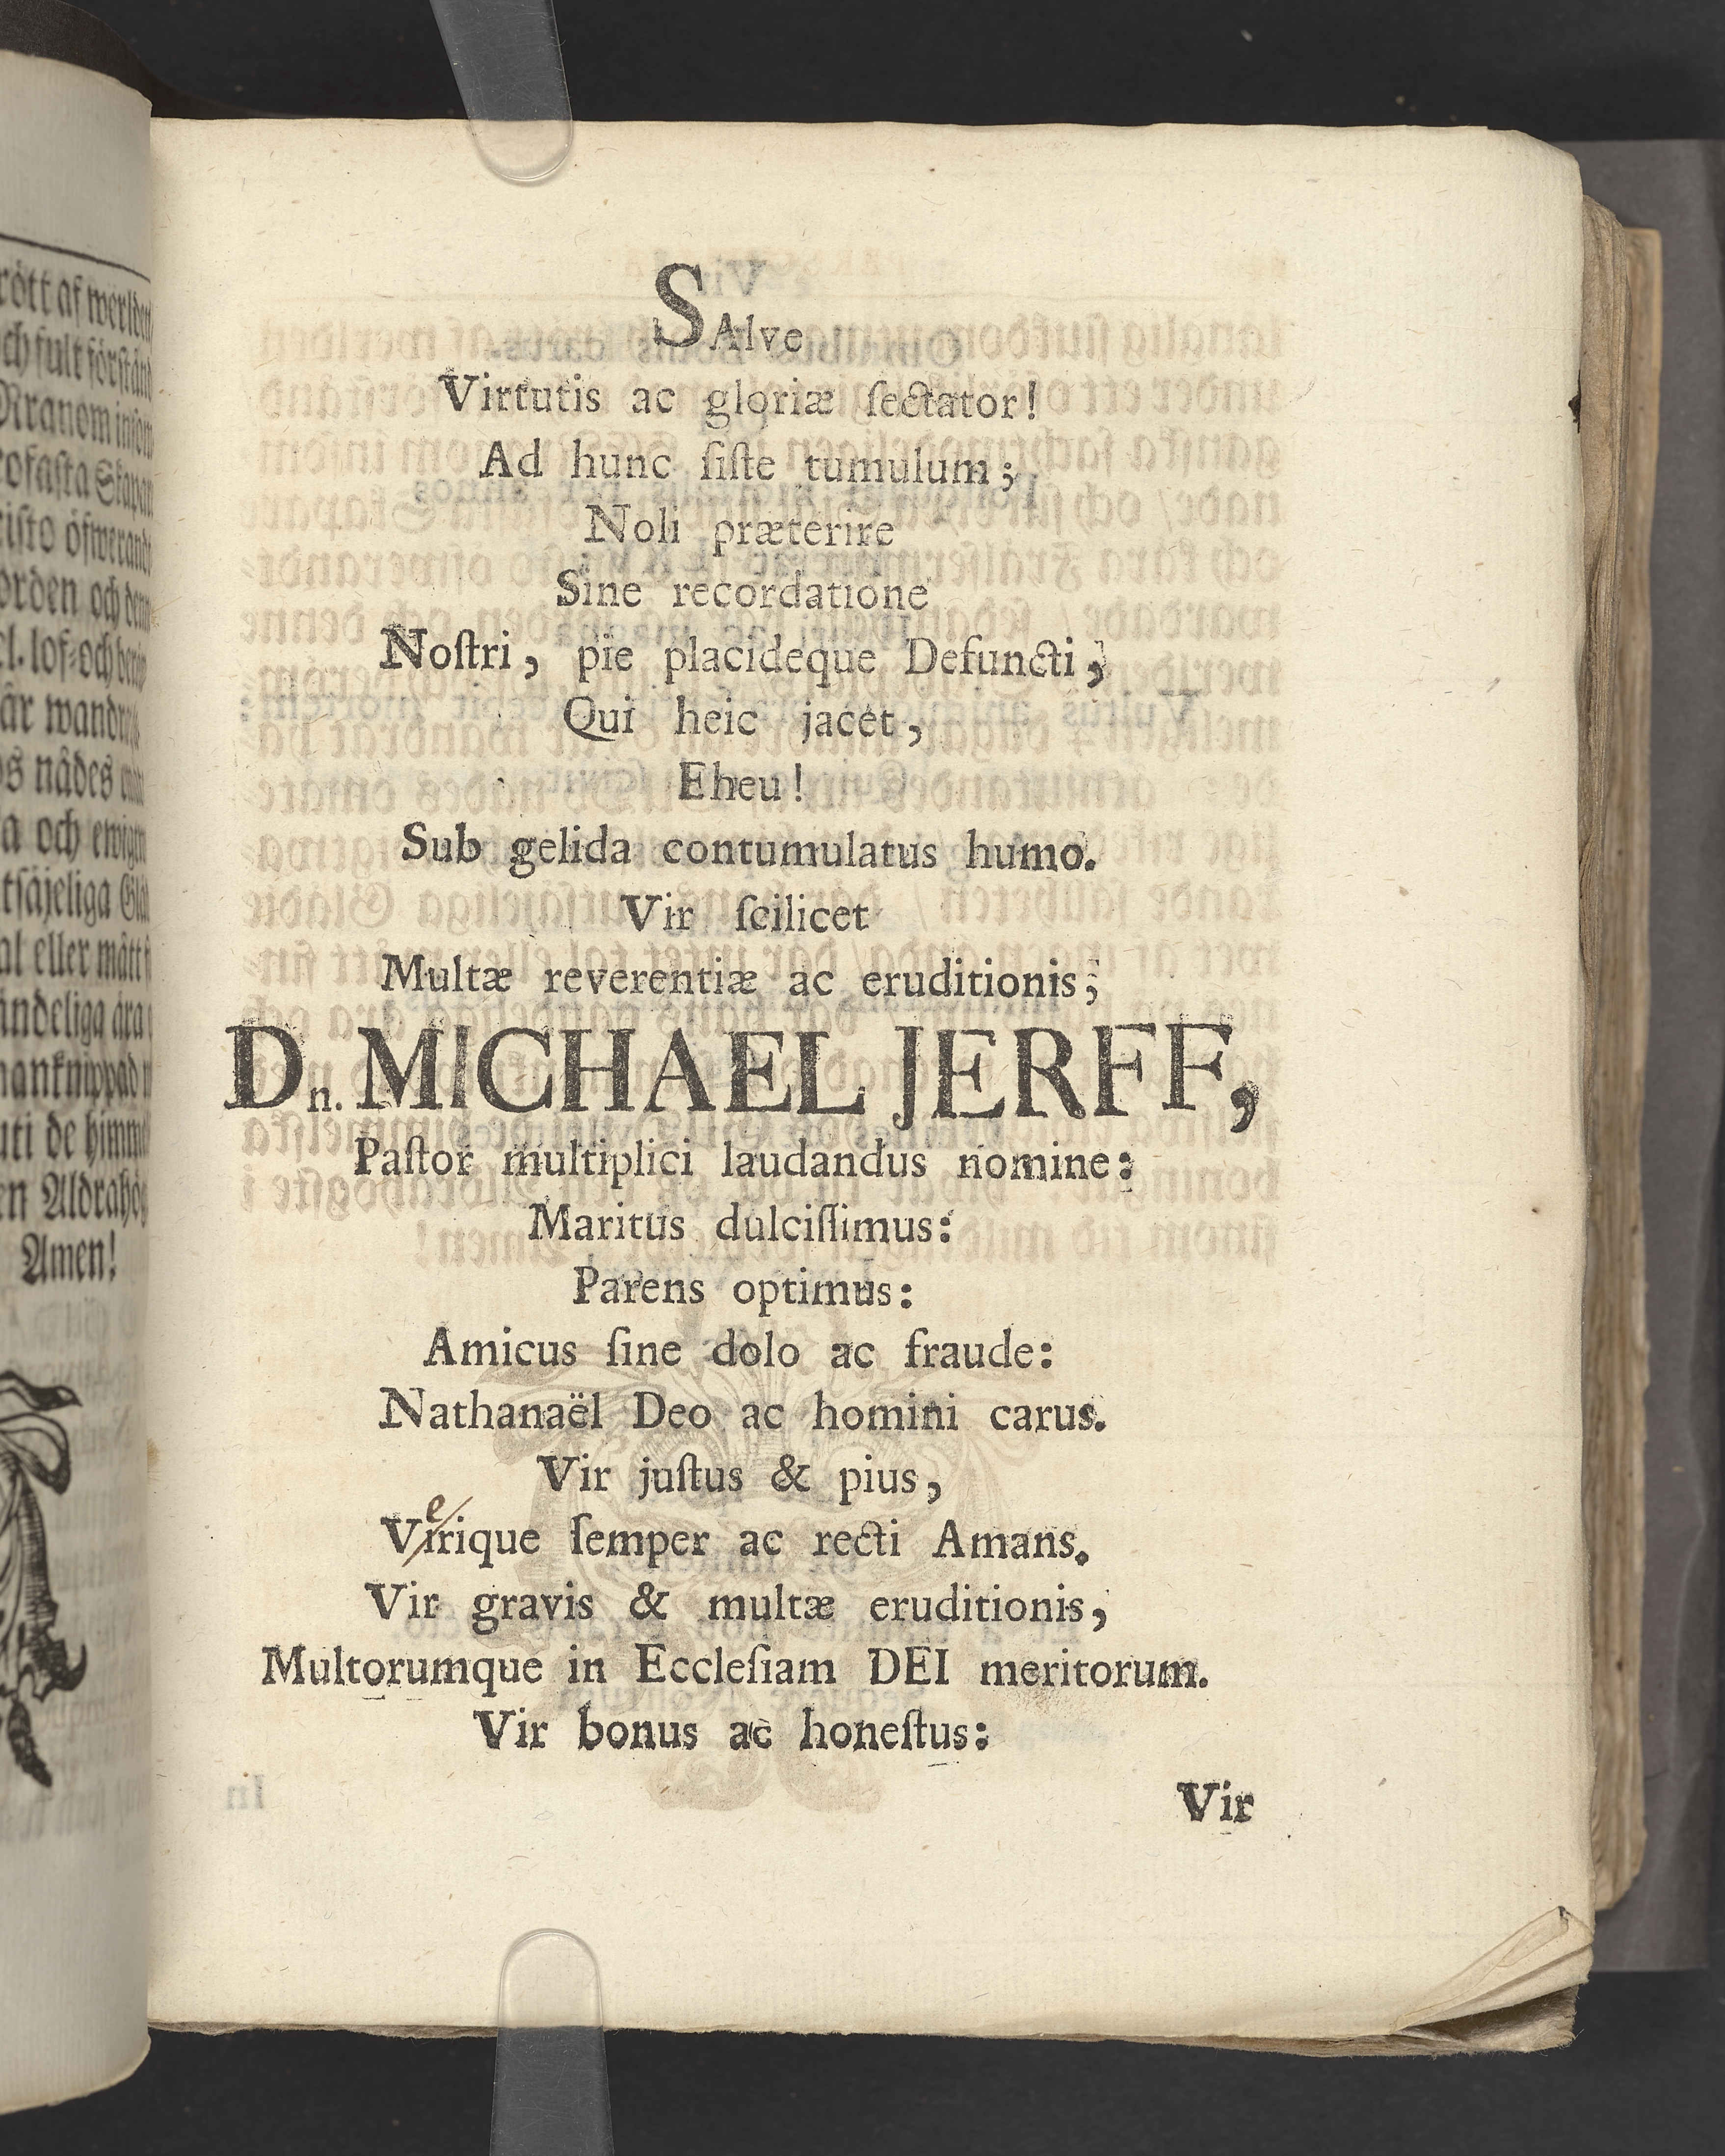 SAlve
Virtutis ac gloriæ ſectator!
Ad hunc ſiſte tumulum;
Noli præterire
Sine recordatione
Noſtri, pie placideque Defuncti,
Qui heic jacet,
Eheu!
Sub gelida contumulatus humo.
Vir ſcilicet
Multæ reverentiæ ac eruditionis;
Dn. MICHAEL JERFF,
Paſtor multiplici laudandus nomine:
Maritus dulciſſimus:
Parens optimus:
Amicus ſine dolo ac fraude:
Nathanaël Deo ac homini carus.
Vir juſtus & pius,
e
Virique ſemper ac recti Amans.
Vir gravis & multæ eruditionis,
Multorumque in Eccleſiam DEI meritorum.
Vir bonus ac honeſtus:
Vir
rött af
ch fult förſtånd
a och
tſäjeliga
al eller mått
ändeliga ära
en Aldrahög
Amen!